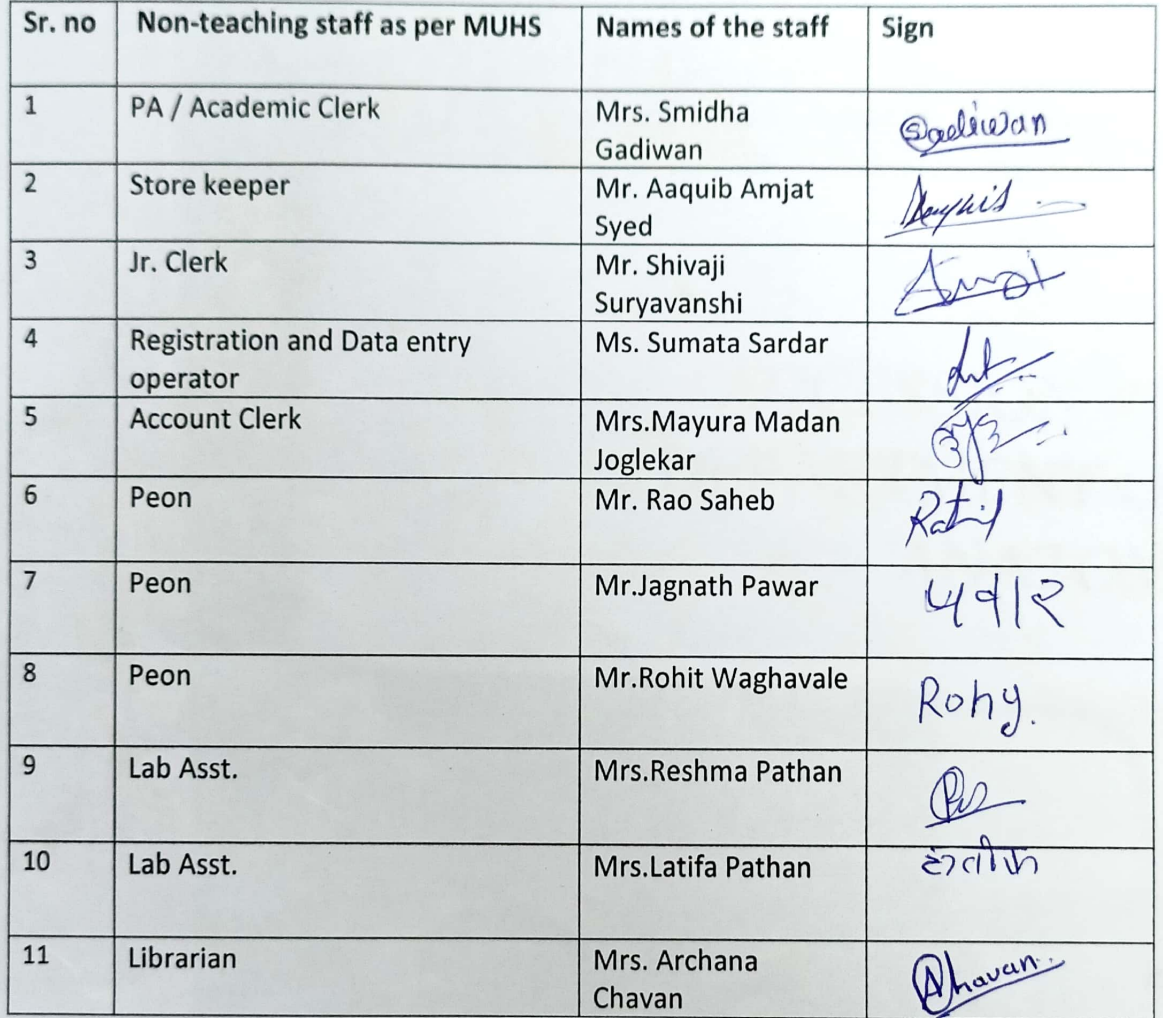 Sr. no Non-teaching staff as per MUHS Names of the staff Sign
1 PA / Academic Clerk Mrs. Smidha
Gadiwan Gadiwan
2 Store keeper Mr. Aaquib Amjat
Syed
3 Jr. Clerk Mr. Shivaji
Suryavanshi
4 Registration and Data entry Ms. Sumata Sardar
operator
5 Account Clerk Mrs.Mayura Madan
Joglekar
6 Peon Mr. Rao Saheb
7 Peon Mr.Jagnath Pawar पवार
8 Peon Mr.Rohit Waghavale
9 Lab Asst. Mrs.Reshma Pathan
10 Lab Asst. Mrs.Latifa Pathan
11 Librarian Mrs. Archana
Chavan